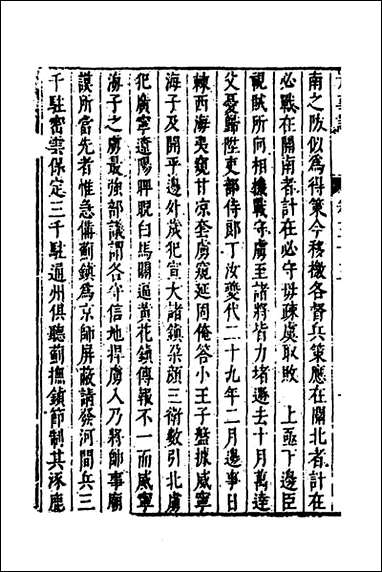 南之阪似為得策今移檄各督兵策應在關北者計在
必戰在關南者計在必守毋疎虞取敗　上亟下邊臣
視賊所向相機戰守虜至諸將皆力堵遁去十月萬達
父憂歸陞吏部侍郎丁汝夔代二十九年二月邊事日
棘西海夷窺甘凉套虜窺延固俺答小王子盤據威寧
海子及開平邊外歲犯宣大諸鎮朶顔三衛數引北虜
犯廣寧遼陽睥睨白馬關通黃花鎮傳報不一而威寧
海子之虜最強部議謂各守信地捍虜人乃將帥事廟
謨所當先者惟急備薊鎮為京師屏蔽請發河間兵三
千駐密雲保定三千駐通州俱聽薊撫鎮節制其涿鹿